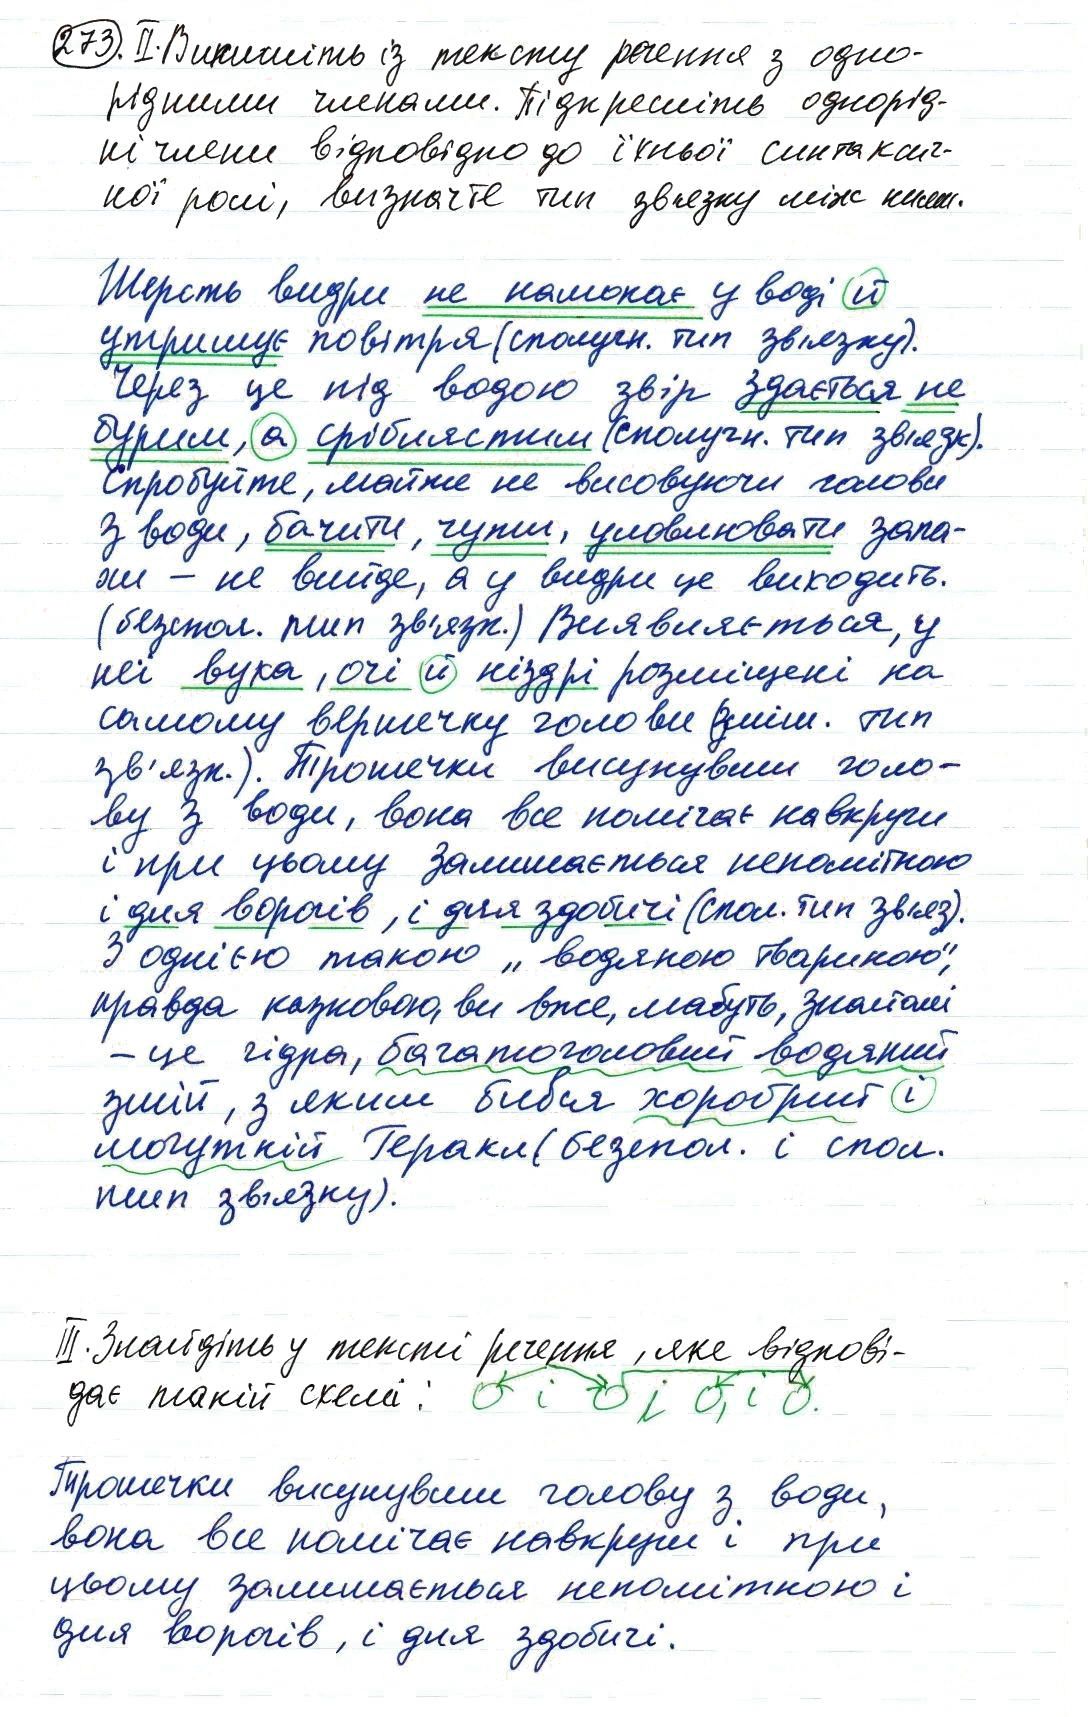 273. II. Випишіть із тексту речення з одно-
рідними членами. Підкресліть однорід-
ні члени відповідно до їхньої синтаксич-
ної ролі, визначте тип зв'язку між ними.
Шерсть видри не намокає у воді й
утримує повітря (сполучн. тип зв'язку).
Через це під водою звір здається не
бурим, а сріблястим (сполучн. тип зв'язк).
Спробуйте, майже не висовуючи голови
з води, бачити, чути, уловлювати запа-
хи – не вийде, а у видри це виходить.
(безспол. тип зв'язк.) Виявляється, у
неї вуха, очі й ніздрі розміщені на
самому вершечку голови (зміш. тип
зв'язк.). Трошечки висунувши голо-
ву з води, вона все помічає навкруги
і при цьому залишається непомітною
і для ворогів, і для здобичі (спол. тип зв'яз).
З однією такою „водяною твариною",
правда казковою, ви вже, мабуть, знайомі
– це гідра, багатоголовий водяний
змій, з яким бився хоробрий і
могутній Геракл (безспол. і спол.
тип зв'язку).
III. Знайдіть у тексті речення, яке відпові-
дає такій схемі: О і О; О, і О.
Трошечки висунувши голову з води,
вона все помічає навкруги і при
цьому залишається непомітною і
для ворогів, і для здобичі.